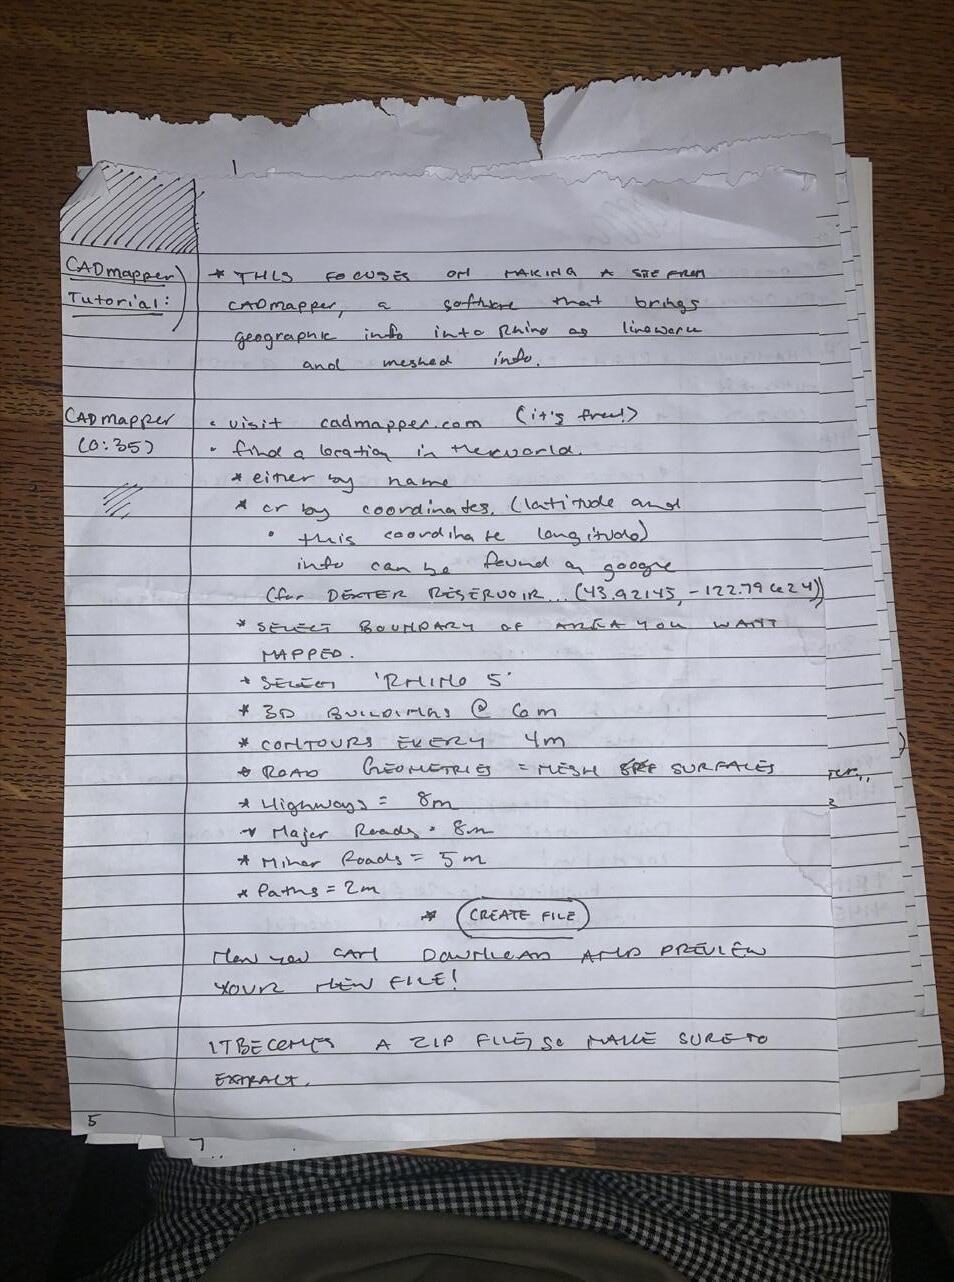 CADmapper
Tutorial:
* THIS FOCUSES ON MAKING A SITE FROM
CADmapper, a software that brings
geographic info into Rhino as linework
and meshed info.
CADmapper
(0:35)
• visit cadmapper.com (it's free!)
• find a location in the world.
* either by name
* or by coordinates. (latitude and
• this coordinate longitude)
info can be found on google
(for DEXTER RESERVOIR... (43.92145, -122.79624))
* SELECT BOUNDARY OF AREA YOU WANT
MAPPED.
* SELECT 'RHINO 5'
* 3D BUILDINGS @ 6m
* CONTOURS EVERY 4m
* ROAD GEOMETRIES = MESH SURFACES
* Highways = 8m
* Major Roads = 8m
* Minor Roads = 5m
* Paths = 2m
* CREATE FILE
Now you CAN DOWNLOAD AND PREVIEW
YOUR NEW FILE!
IT BECOMES A ZIP FILE, SO MAKE SURE TO
EXTRACT.
5
7